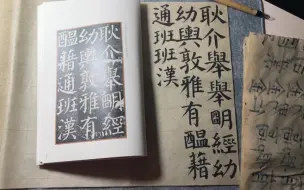 耿介舉明經
幼輿敦雅有
醞藉通班漢
耿介舉舉明經幼
幼輿敦雅有醞藉
通班班漢